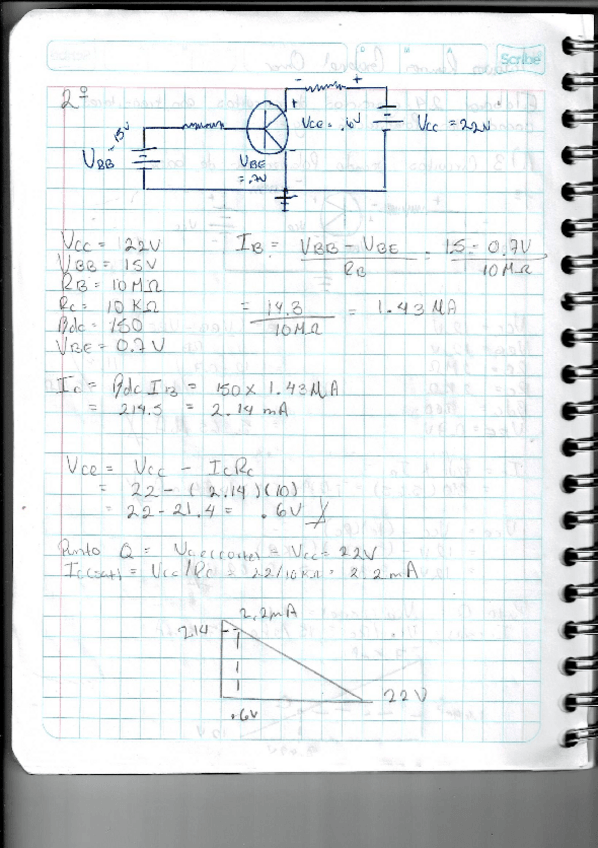 Scribe
2º
VCE = .6V
VCC = 22V
15V
VBB
VBE
= .7V
VCC = 22V
VBB = 15V
RB = 10MΩ
RC = 10 KΩ
βdc = 150
VBE = 0.7V
IB = VBB - VBE / RB = 15 - 0.7V / 10MΩ
= 14.3 / 10MΩ = 1.43 MA
IC = βdc IB = 150 x 1.43 MA
= 214.5 = 2.14 mA
VCE = VCC - ICRC
= 22 - (2.14)(10)
= 22 - 21.4 = .6V
Punto Q = VCE(corte) = VCC = 22V
IC(sat) = VCC/RC = 22/10KΩ = 2.2mA
2.2mA
2.14
22V
.6V